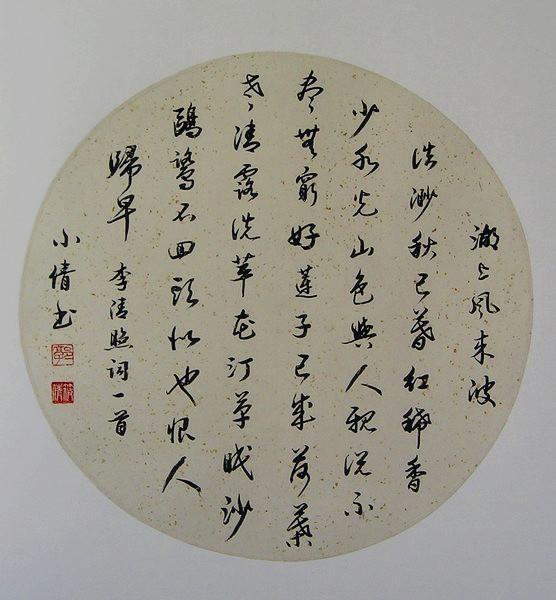 湖上風来波
浩渺秋已暮红稀香
少水光山色與人親说不
尽無窮好蓮子已成荷葉
老清露洗苹花汀草眠沙
鷗鷺不回頭似也恨人
歸早 李清照词一首
小倩书